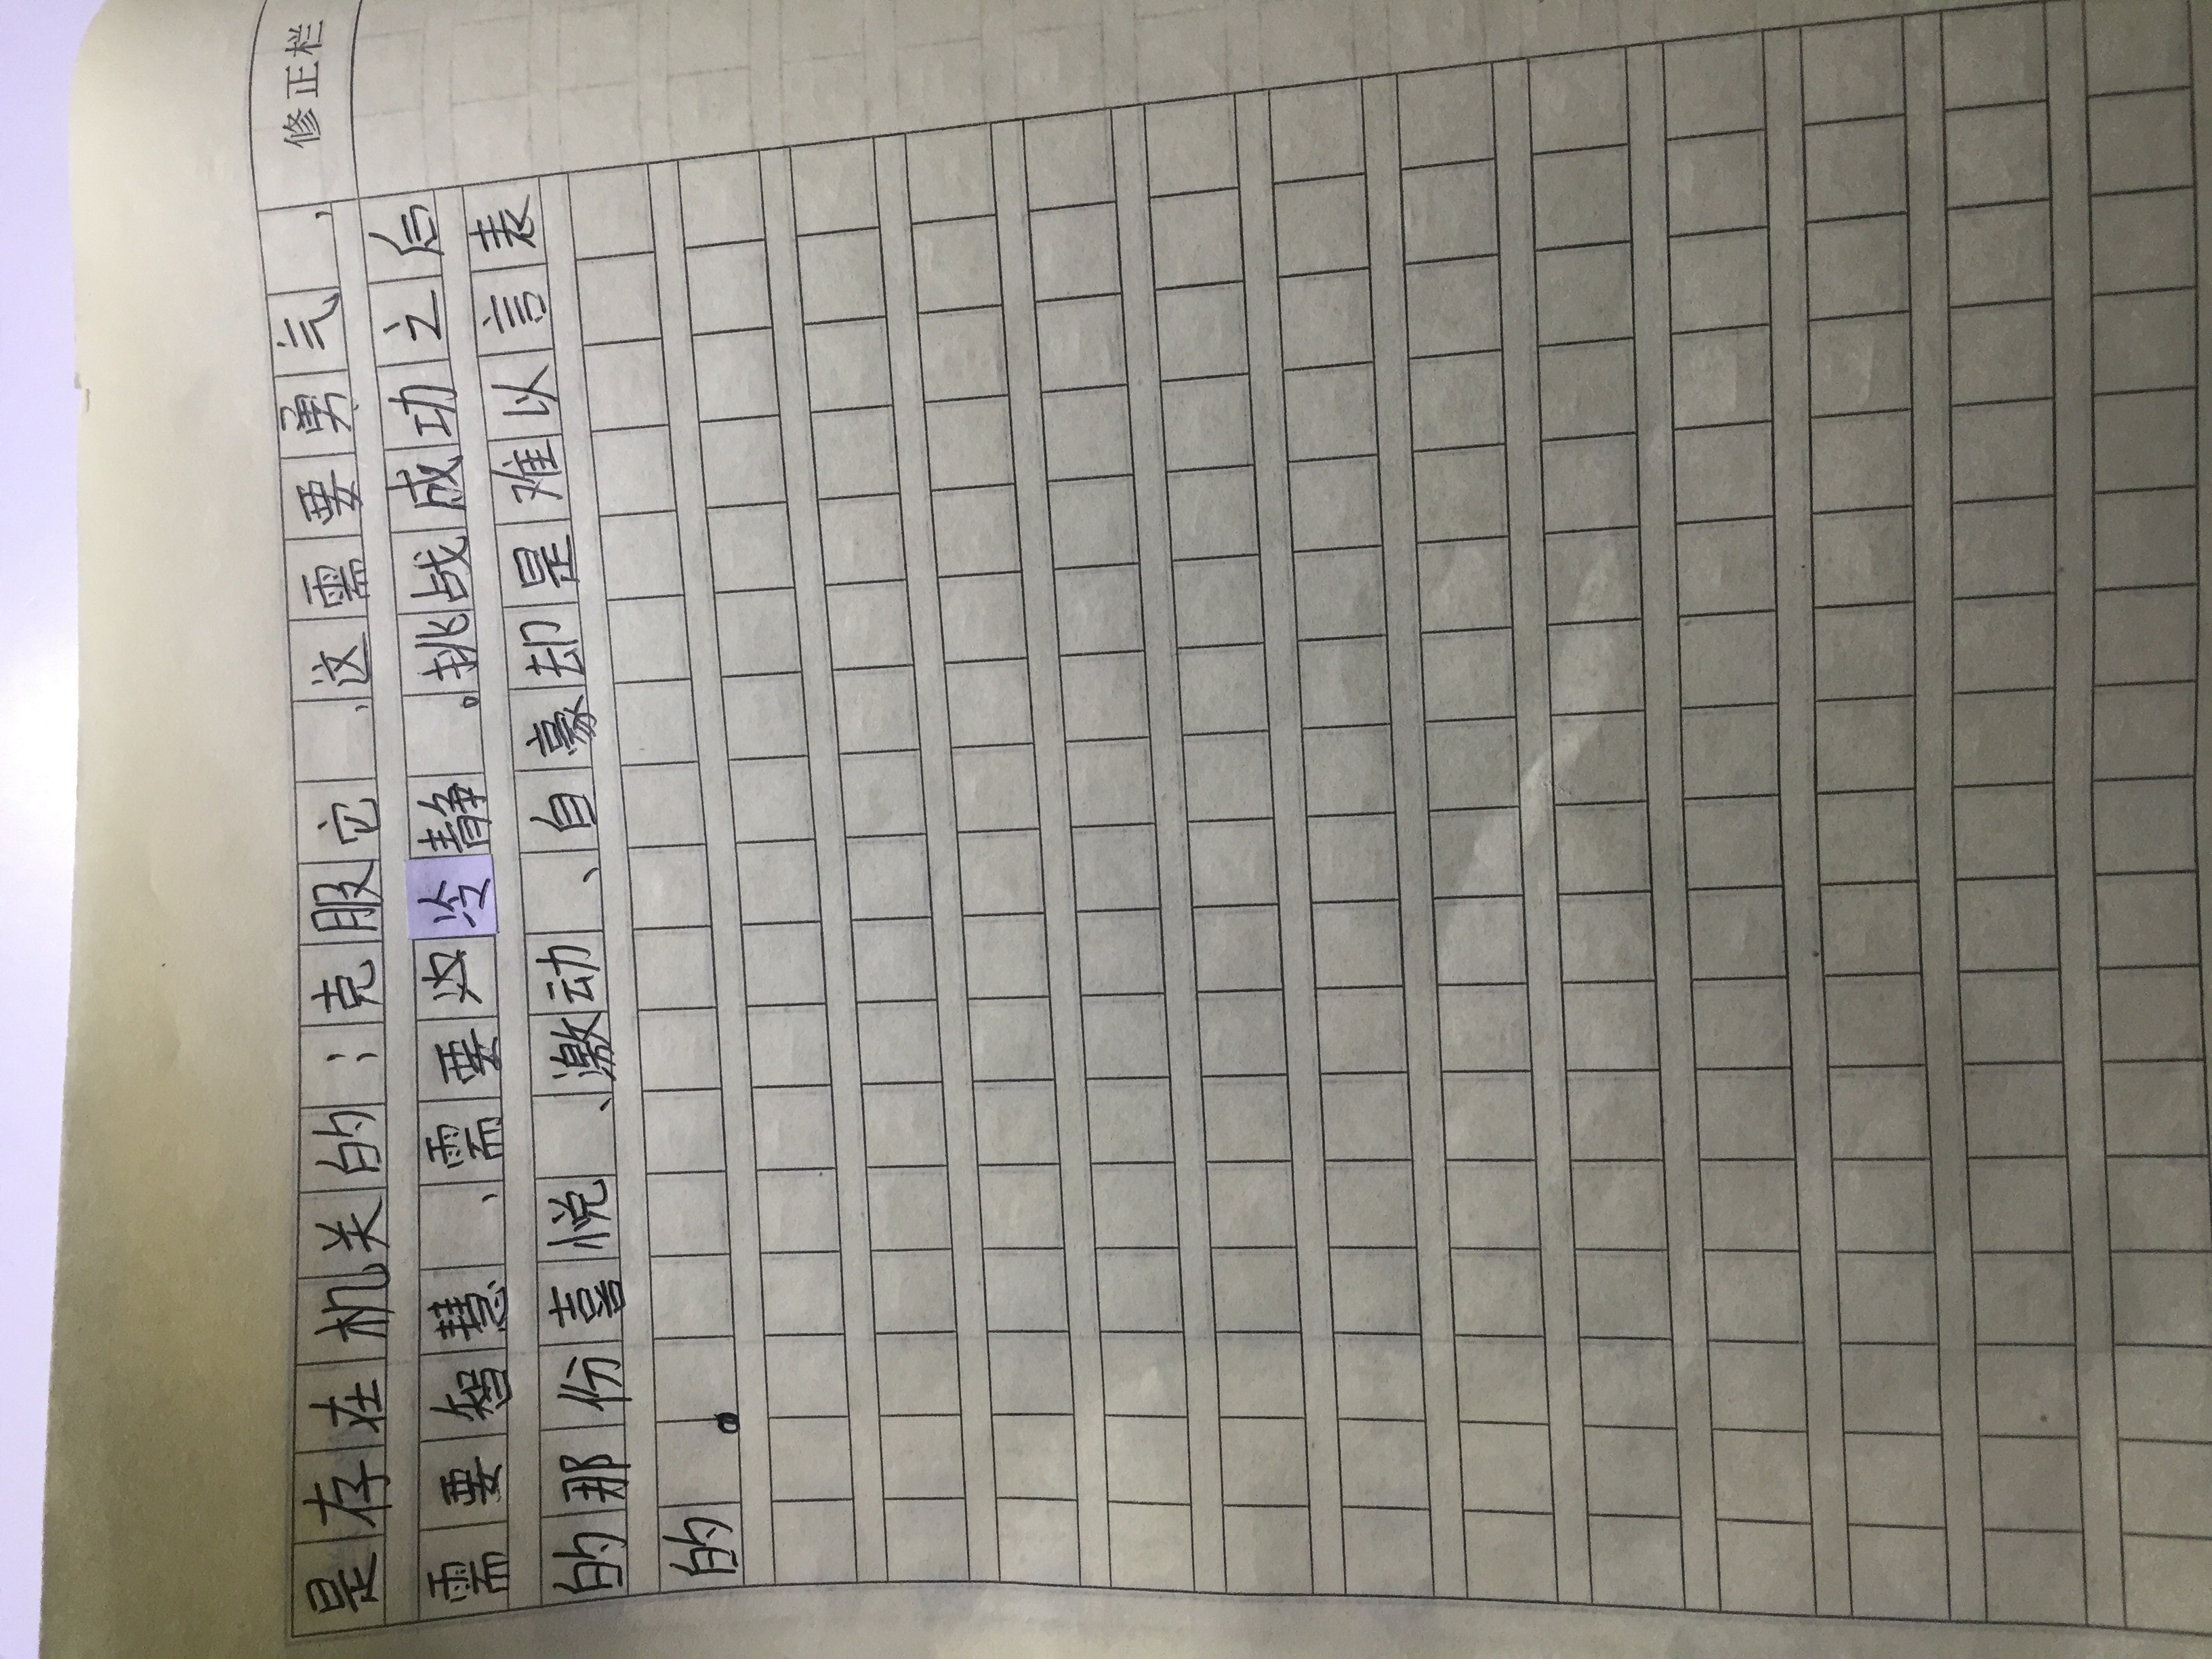 修正栏
是存在机关的；克服它，这需要勇气，
需要智慧，需要冷静。挑战成功之后
的那份喜悦、激动、自豪却是难以言表
的。